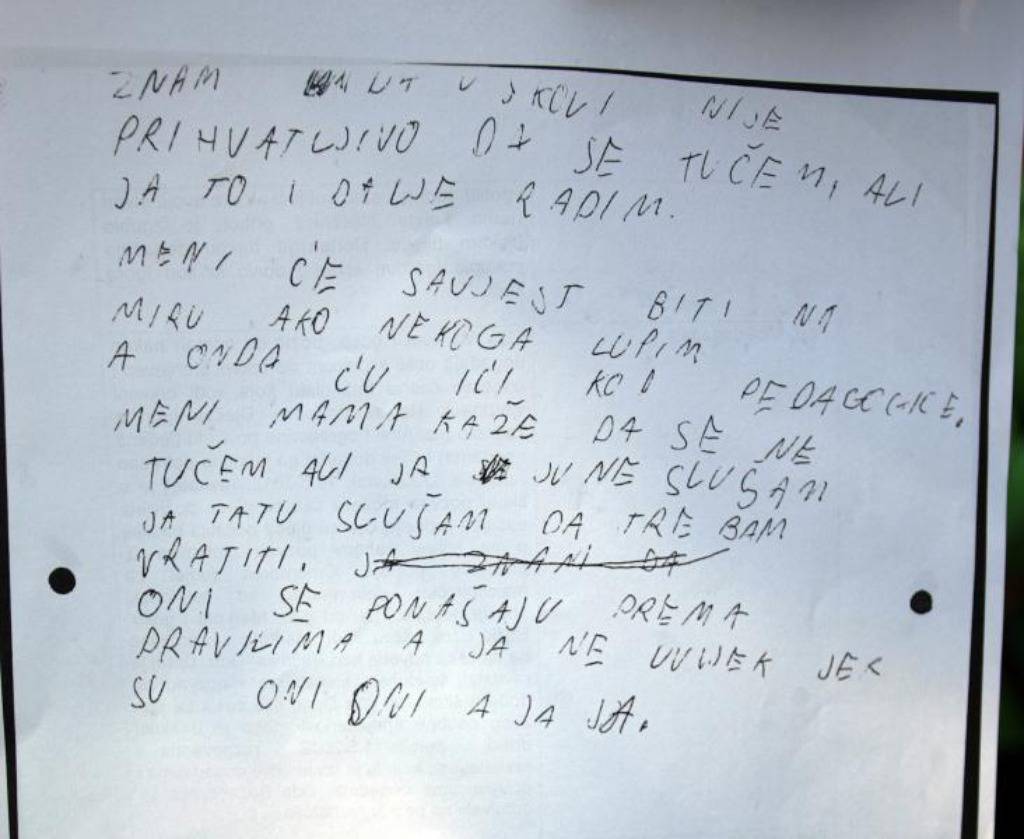 ZNAM DA U ŠKOLI NIJE
PRIHVATLJIVO DA SE TUČEM, ALI
JA TO I DALJE RADIM.
MENI ĆE SAVJEST BITI NA
MIRU AKO NEKOGA LUPIM
A ONDA ĆU IĆI KOD PEDAGOGICE.
MENI MAMA KAŽE DA SE NE
TUČEM ALI JA JU NE SLUŠAM
JA TATU SLUŠAM DA TREBAM
VRATITI. JA ZNANI DA
ONI SE PONAŠAJU PREMA
PRAVILIMA A JA NE UVIJEK JER
SU ONI ONI A JA JA.